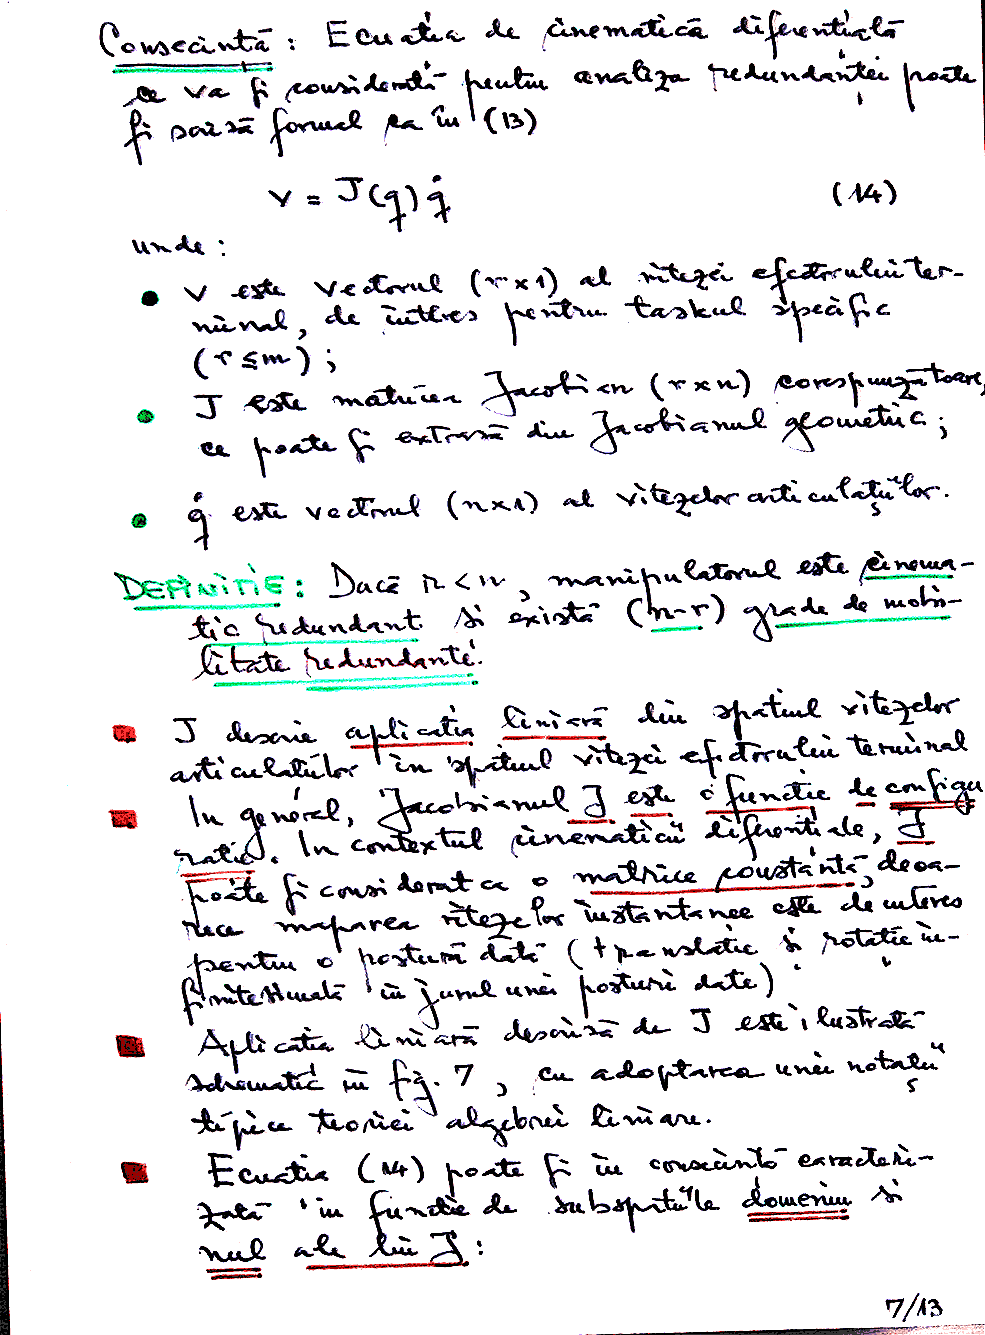 Consecință: Ecuația de cinematică diferențială
ce va fi considerată pentru analiza redundanței poate
fi scrisă formal ca în (13)
v = J(q) q̇ (14)
unde:
• v este vectorul (r×1) al vitezei efectorului ter-
minal, de interes pentru taskul specific
(r ≤ m);
• J este matricea Jacobian (r×n) corespunzătoare,
ce poate fi extrasă din Jacobianul geometric;
• q̇ este vectorul (n×1) al vitezelor articulațiilor.
DEFINIȚIE: Dacă r < n, manipulatorul este cinema-
tic redundant și există (n-r) grade de mobi-
litate redundante.
■ J descrie aplicația liniară din spațiul vitezelor
articulațiilor în spațiul vitezei efectorului terminal
■ In general, Jacobianul J este o funcție de configu
rație. In contextul cinematicii diferențiale, J
poate fi considerat ca o matrice constantă, deoa-
rece maparea vitezelor instantanee este de interes
pentru o postură dată (translație și rotație in-
finitesimală în jurul unei posturi date)
■ Aplicația liniară descrisă de J este ilustrată
schematic în fig. 7, cu adoptarea unei notații
tipice teoriei algebrei liniare.
■ Ecuația (14) poate fi în consecință caracteri-
zată în funcție de subspațiile domeniu și
nul ale lui J:
7/13